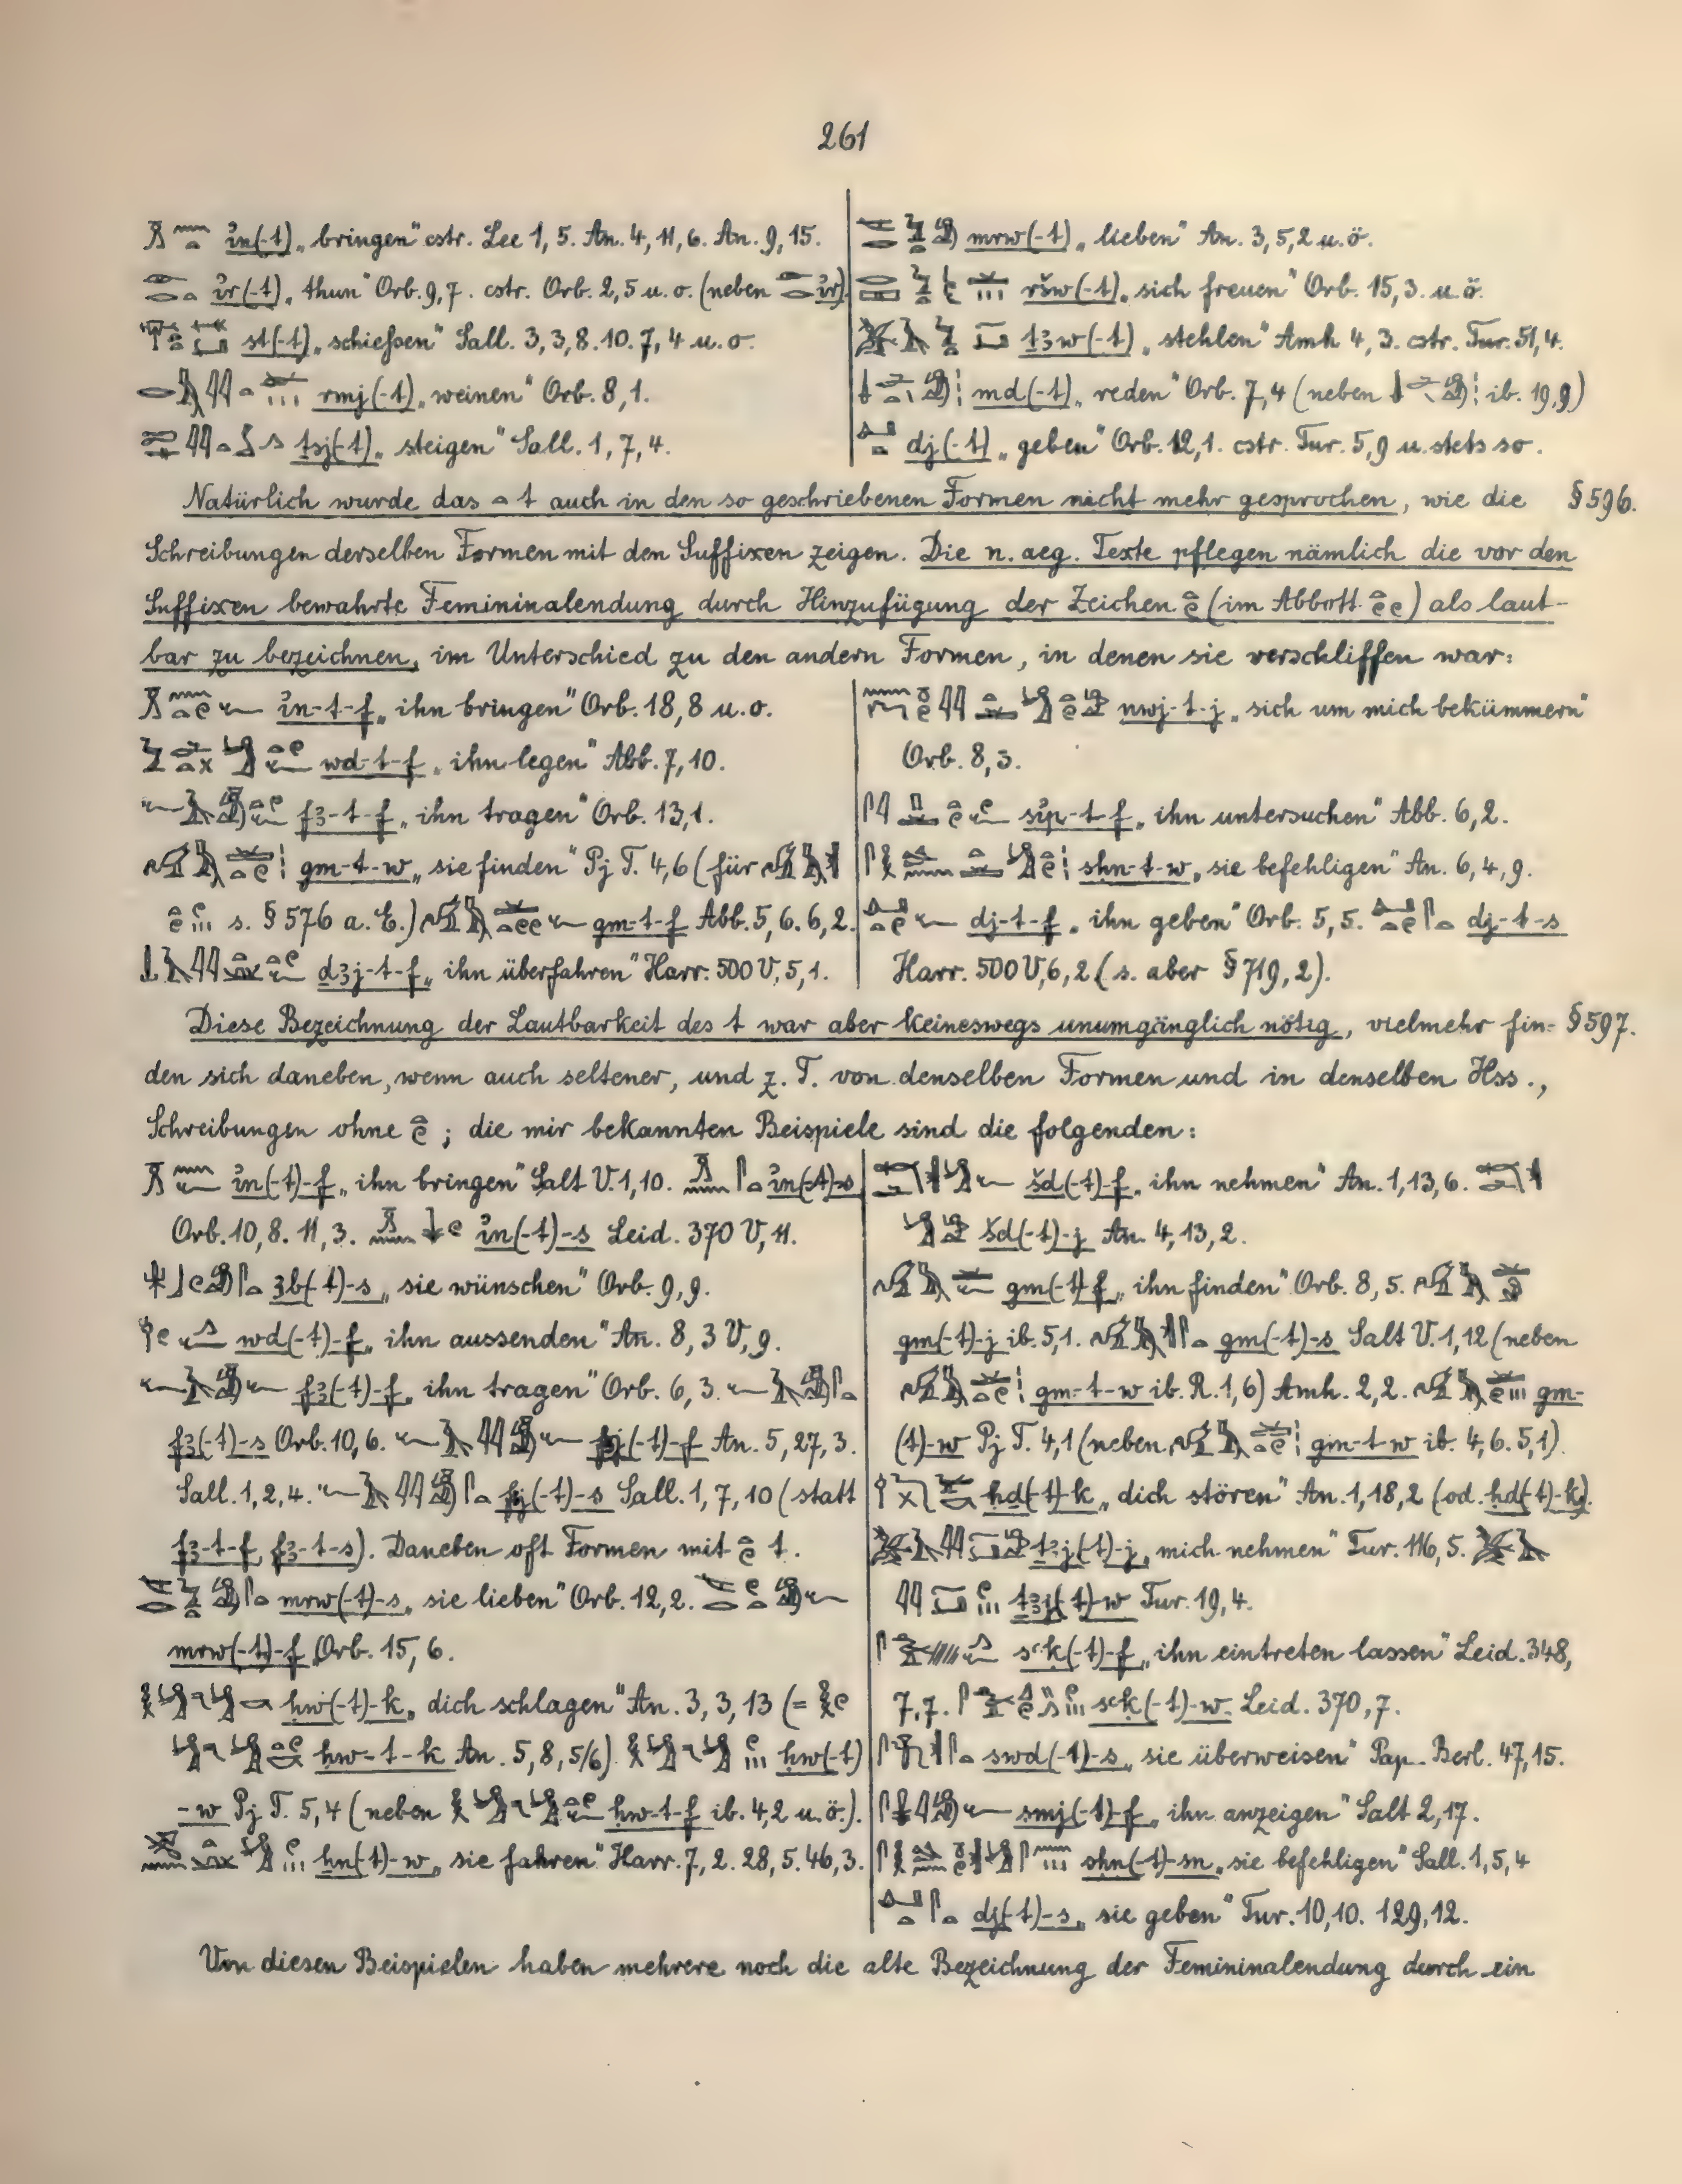 261
in(-t) „bringen“ cstr. Lee 1,5. An. 4,11,6. An. 9,15.
ir(-t) „thun“ Orb. 9,7. cstr. Orb. 2,5 u. o. (neben ir)
st(-t) „schießen“ Sall. 3,3,8.10. 7,4 u. o.
rmj(-t) „weinen“ Orb. 8,1.
ṯsj(-t) „steigen“ Sall. 1,7,4.
mrw(-t) „lieben“ An. 3,5,2 u. ö.
ršw(-t) „sich freuen“ Orb. 15,3. u. ö.
ṯꜣw(-t) „stehlen“ Amh 4,3. cstr. Tur. 51,4.
md(-t) „reden“ Orb. 7,4 (neben ib. 19,9)
dj(-t) „geben“ Orb. 12,1. cstr. Tur. 5,9 u. stets so.
Natürlich wurde das t auch in den so geschriebenen Formen nicht mehr gesprochen, wie die § 596.
Schreibungen derselben Formen mit den Suffixen zeigen. Die n. aeg. Texte pflegen nämlich die vor den
Suffixen bewahrte Femininalendung durch Hinzufügung der Zeichen (im Abbott ) als laut-
bar zu bezeichnen, im Unterschied zu den andern Formen, in denen sie verschliffen war:
in-t-f „ihn bringen“ Orb. 18,8 u. o.
wd-t-f „ihn legen“ Abb. 7,10.
fꜣ-t-f „ihn tragen“ Orb. 13,1.
gm-t-w „sie finden“ Pj T. 4,6 (für
s. § 576 a. E.) gm-t-f Abb. 5,6. 6,2.
ḏꜣj-t-f „ihn überfahren“ Harr. 500 V, 5,1.
nwj-t-j „sich um mich bekümmern“
Orb. 8,3.
sip-t-f „ihn untersuchen“ Abb. 6,2.
sḥn-t-w „sie befehligen“ An. 6,4,9.
dj-t-f „ihn geben“ Orb. 5,5. dj-t-s
Harr. 500 V, 6,2 (s. aber § 719,2).
Diese Bezeichnung der Lautbarkeit des t war aber keineswegs unumgänglich nötig, vielmehr fin- § 597.
den sich daneben, wenn auch seltener, und z. T. von denselben Formen und in denselben Hss.,
Schreibungen ohne ; die mir bekannten Beispiele sind die folgenden:
in(-t)-f „ihn bringen“ Salt V. 1,10. in(-t)-s
Orb. 10,8. 11,3. in(-t)-s Leid. 370 V, 11.
ꜣb(-t)-s „sie wünschen“ Orb. 9,9.
wd(-t)-f „ihn aussenden“ An. 8,3 V, 9.
fꜣ(-t)-f „ihn tragen“ Orb. 6,3.
fꜣ(-t)-s Orb. 10,6. fj(-t)-f An. 5,27,3.
Sall. 1,2,4. fj(-t)-s Sall. 1,7,10 (statt
fꜣ-t-f, fꜣ-t-s). Daneben oft Formen mit t.
mrw(-t)-s „sie lieben“ Orb. 12,2.
mrw(-t)-f Orb. 15,6.
ḥw(-t)-k „dich schlagen“ An. 3,3,13 (=
ḥw-t-k An. 5,8,5/6). ḥw(-t)
-w Pj T. 5,4 (neben ḥw-t-f ib. 4,2 u. ö.).
ẖn(-t)-w „sie fahren“ Harr. 7,2. 28,5. 46,3.
šd(-t)-f „ihn nehmen“ An. 1,13,6.
šd(-t)-j An. 4,13,2.
gm(-t)-f „ihn finden“ Orb. 8,5.
gm(-t)-j ib. 5,1. gm(-t)-s Salt V. 1,12 (neben
gm-t-w ib. R. 1,6) Amh. 2,2. gm-
(t)-w Pj T. 4,1 (neben gm-t-w ib. 4,6. 5,1).
ḥd(-t)-k „dich stören“ An. 1,18,2 (od. ḥd(-t)-k).
ṯꜣj(-t)-j „mich nehmen“ Tur. 116,5.
ṯꜣj(-t)-w Tur. 19,4.
sꜥk(-t)-f „ihn eintreten lassen“ Leid. 348,
7,7. sꜥk(-t)-w. Leid. 370,7.
swḏ(-t)-s „sie überweisen“ Pap. Berl. 47,15.
smj(-t)-f „ihn anzeigen“ Salt 2,17.
sḥn(-t)-sn „sie befehligen“ Sall. 1,5,4
dj(-t)-s „sie geben“ Tur. 10,10. 129,12.
Von diesen Beispielen haben mehrere noch die alte Bezeichnung der Femininalendung durch ein